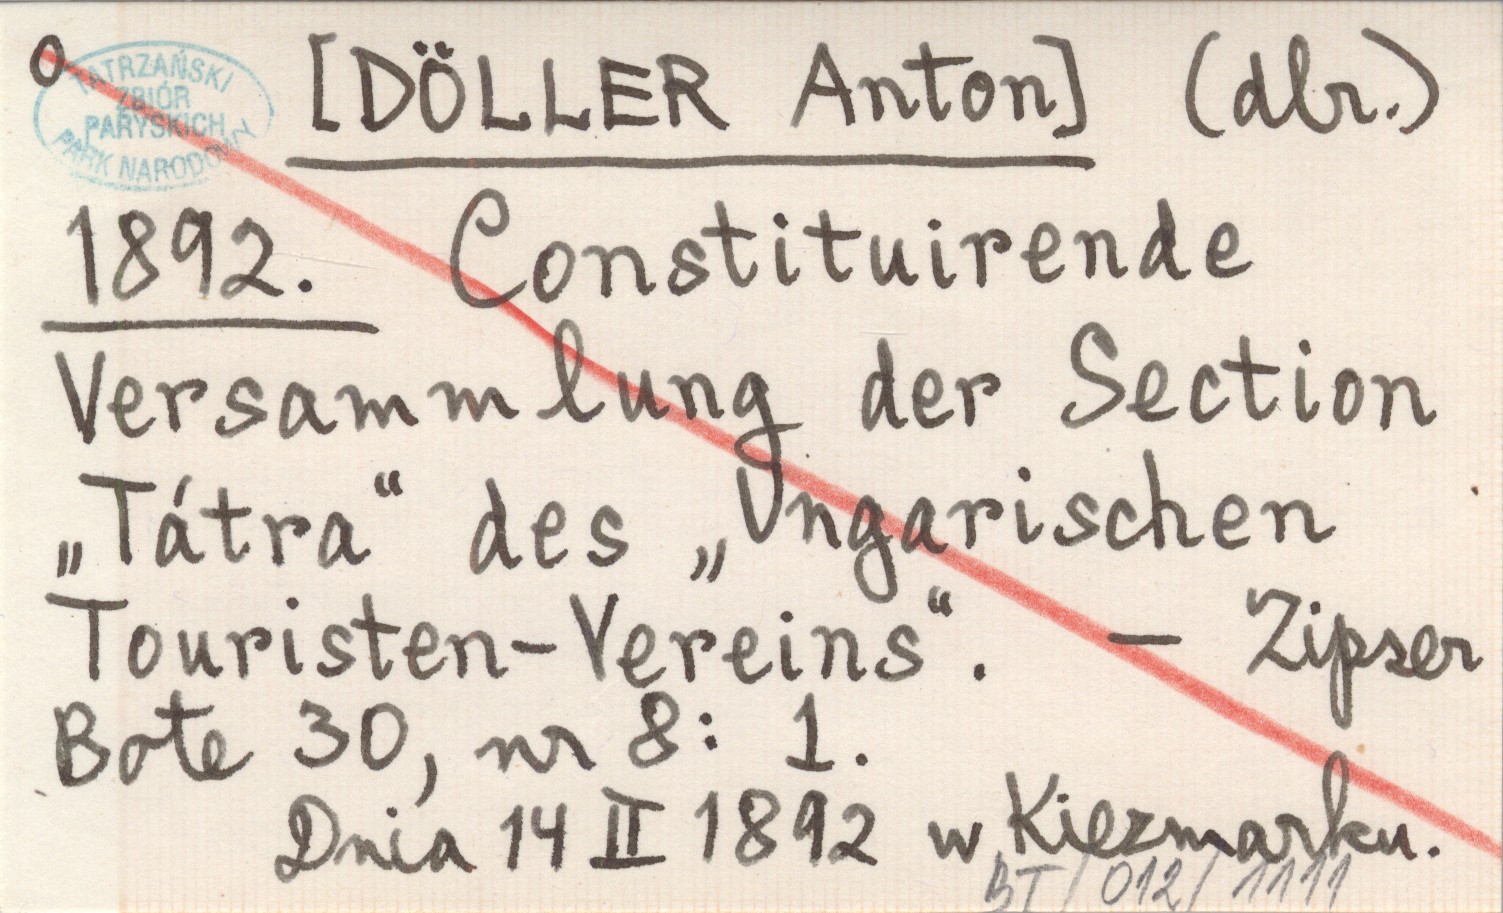 O
TATRZAŃSKI
ZBIÓR
PARYSKICH
PARK NARODOWY
[DÖLLER Anton] (dbr.)
1892. Constituirende
Versammlung der Section
„Tátra“ des „Ungarischen
Touristen-Vereins“. – Zipser
Bote 30, nr 8: 1.
Dnia 14 II 1892 w Kiezmarku.
BT/012/1111